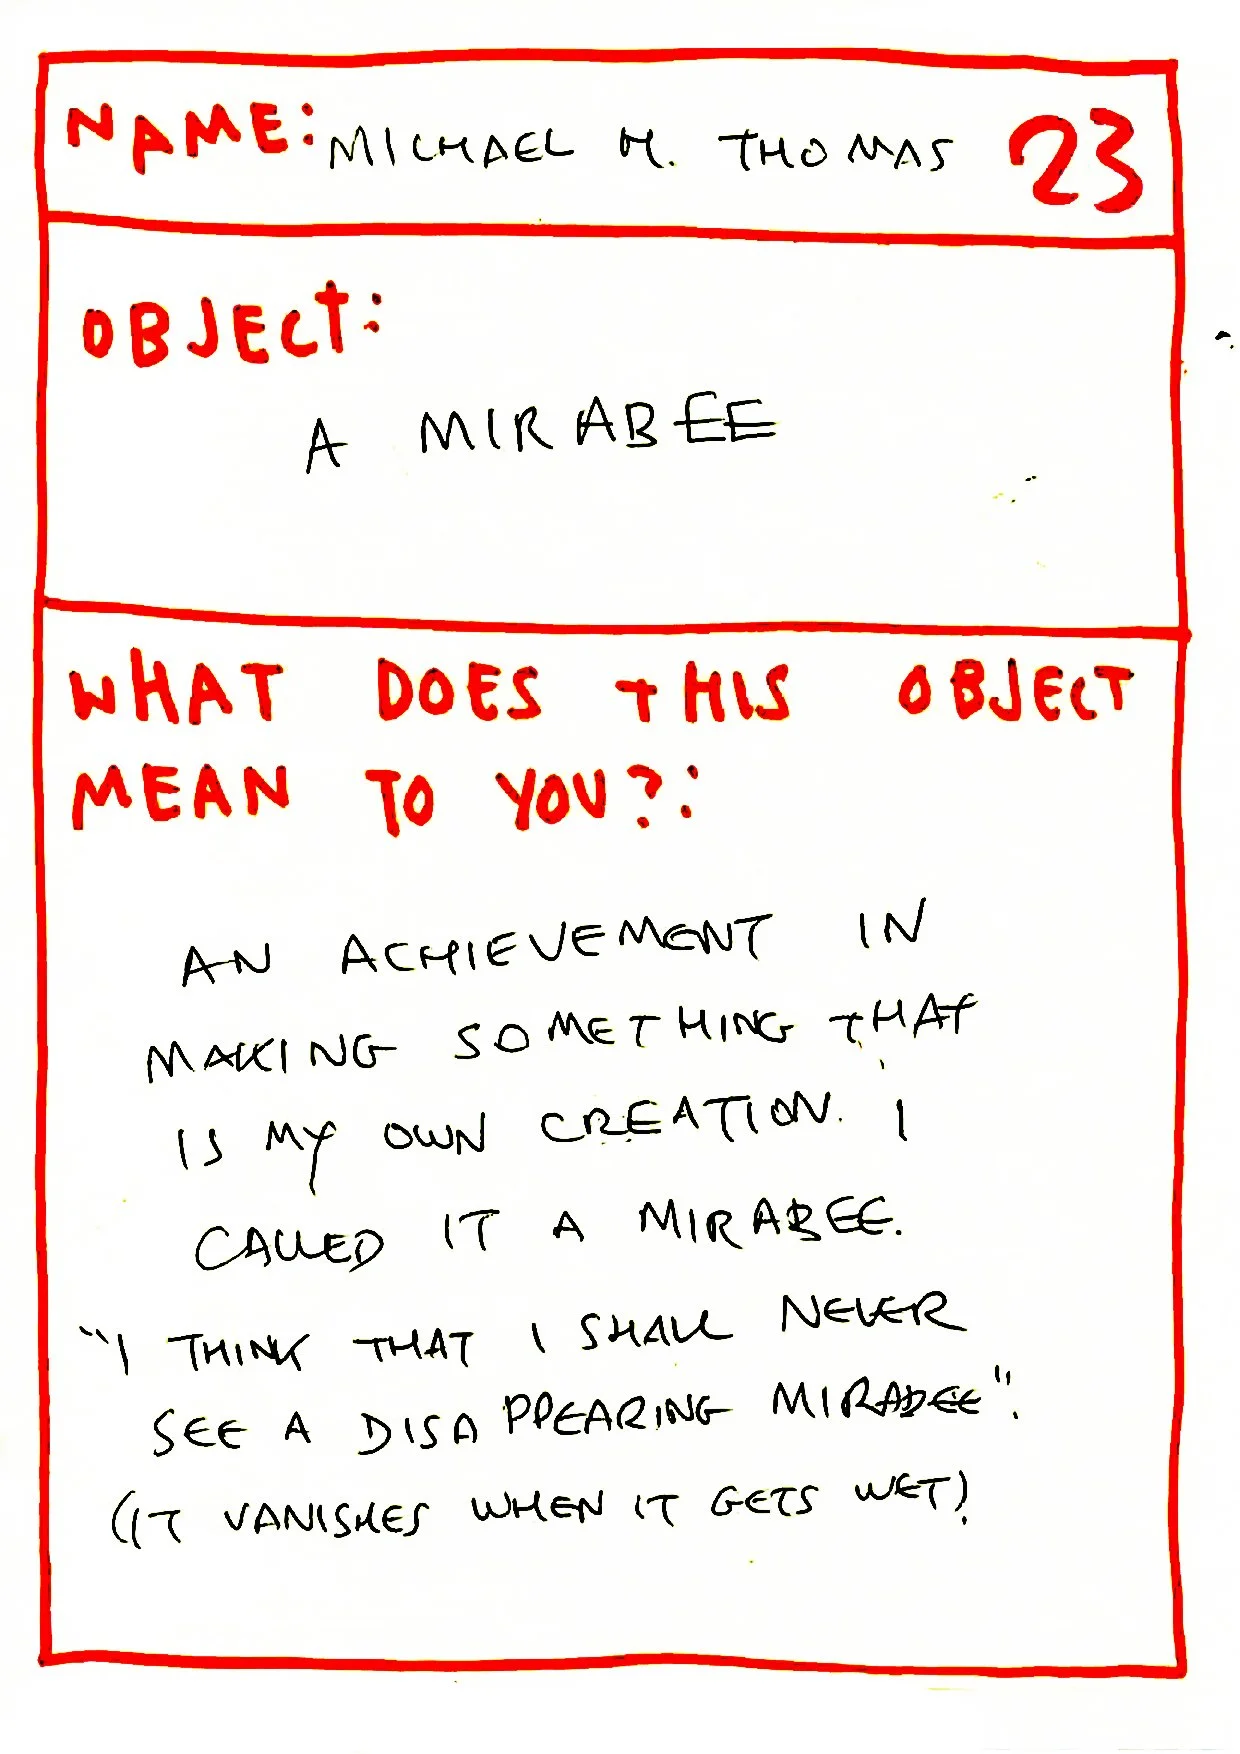 NAME: MICHAEL M. THOMAS 23
OBJECT:
A MIRABEE
WHAT DOES THIS OBJECT
MEAN TO YOU?:
AN ACHIEVEMENT IN
MAKING SOMETHING THAT
IS MY OWN CREATION. I
CALLED IT A MIRABEE.
"I THINK THAT I SHALL NEVER
SEE A DISAPPEARING MIRABEE".
(IT VANISHES WHEN IT GETS WET)